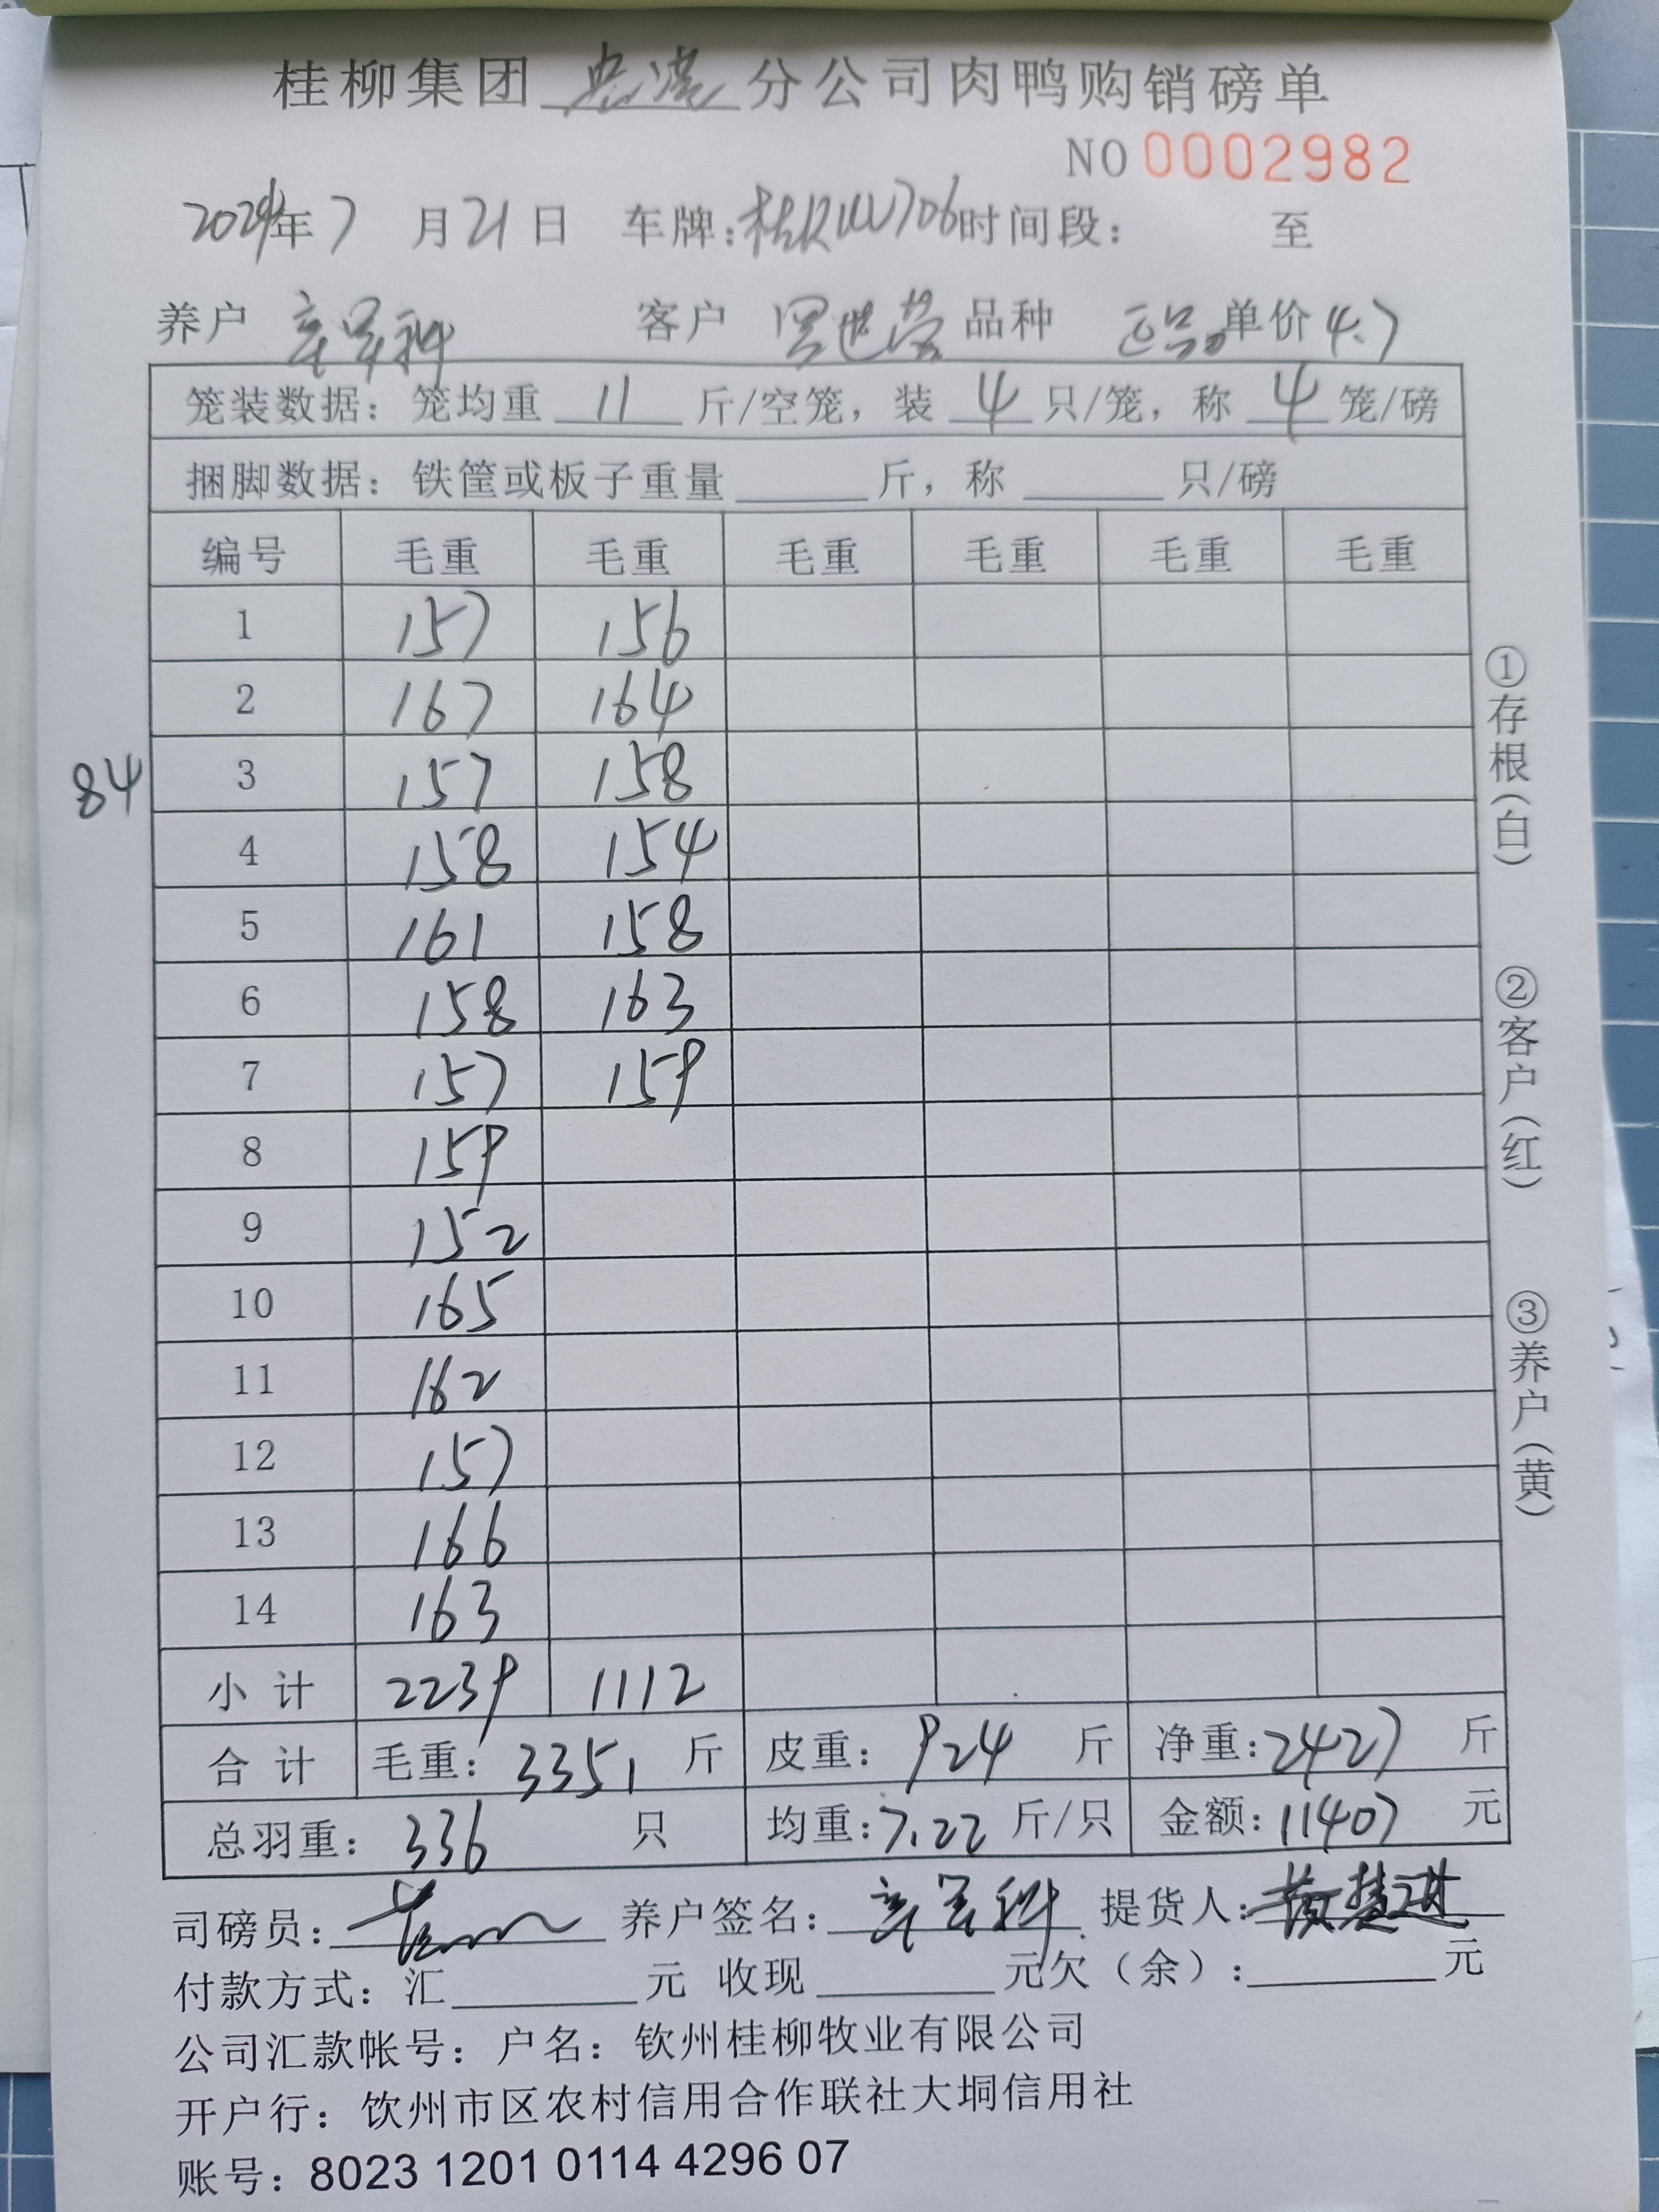 桂柳集团 分公司肉鸭购销磅单
NO 0002982
2024年7月21日 车牌: 时间段: 至
养户 客户 品种 正品 单价 4.7
笼装数据: 笼均重 11 斤/空笼, 装 4 只/笼, 称 4 笼/磅
捆脚数据: 铁筐或板子重量 斤, 称 只/磅
编号 毛重 毛重 毛重 毛重 毛重 毛重
1 157 156
2 167 164
84
3 157 158
4 158 154
5 161 158
6 158 163
7 157 159
8 159
9 152
10 165
11 162
12 157
13 166
14 163
小计 2239 1112
合计 毛重: 3351 斤 皮重: 924 斤 净重: 2427 斤
总羽重: 336 只 均重: 7.22 斤/只 金额: 11407 元
司磅员: 养户签名: 提货人:
付款方式: 汇 元 收现 元欠(余): 元
公司汇款帐号: 户名: 钦州桂柳牧业有限公司
开户行: 钦州市区农村信用合作联社大垌信用社
账号: 8023 1201 0114 4296 07
①存根(白)
②客户(红)
③养户(黄)